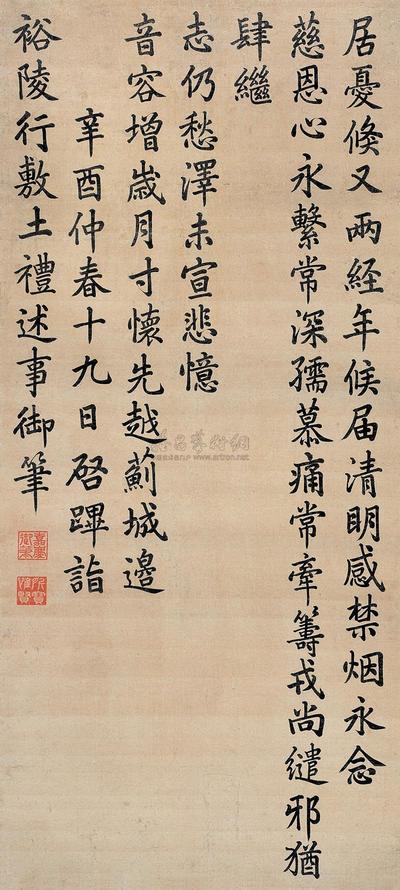 居憂倐又兩経年候届清明感禁烟永念
慈恩心永繫常深孺慕痛常牽籌戎尚繾邪猶
肆繼
志仍愁澤未宣悲憶
音容增嵗月寸懷先越薊城邊
辛酉仲春十九日啓蹕詣
裕陵行敷土禮述事御筆
嘉慶御筆
所寶惟賢
www.artron.net